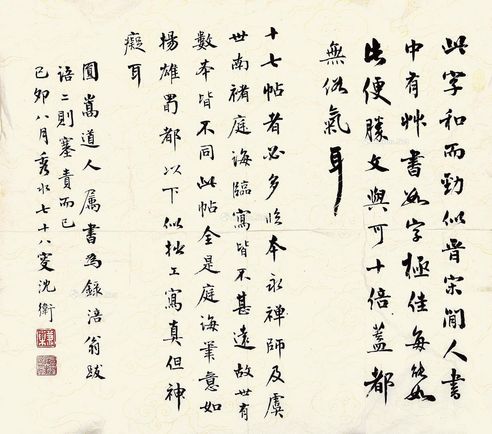 此字和而勁似晉宋間人書
中有艸書數字極佳每能如
此便勝文與可十倍蓋都
無俗氣耳
十七帖者必多臨本永禪師及虞
世南褚庭誨臨寫皆不甚遠故世有
數本皆不同此帖全是庭誨筆意如
楊雄蜀都以下似拙工寫真但神
癡耳
圓嵩道人属書為錄涪翁跋
語二則塞責而已
己卯八月秀水七十八叟沈衛